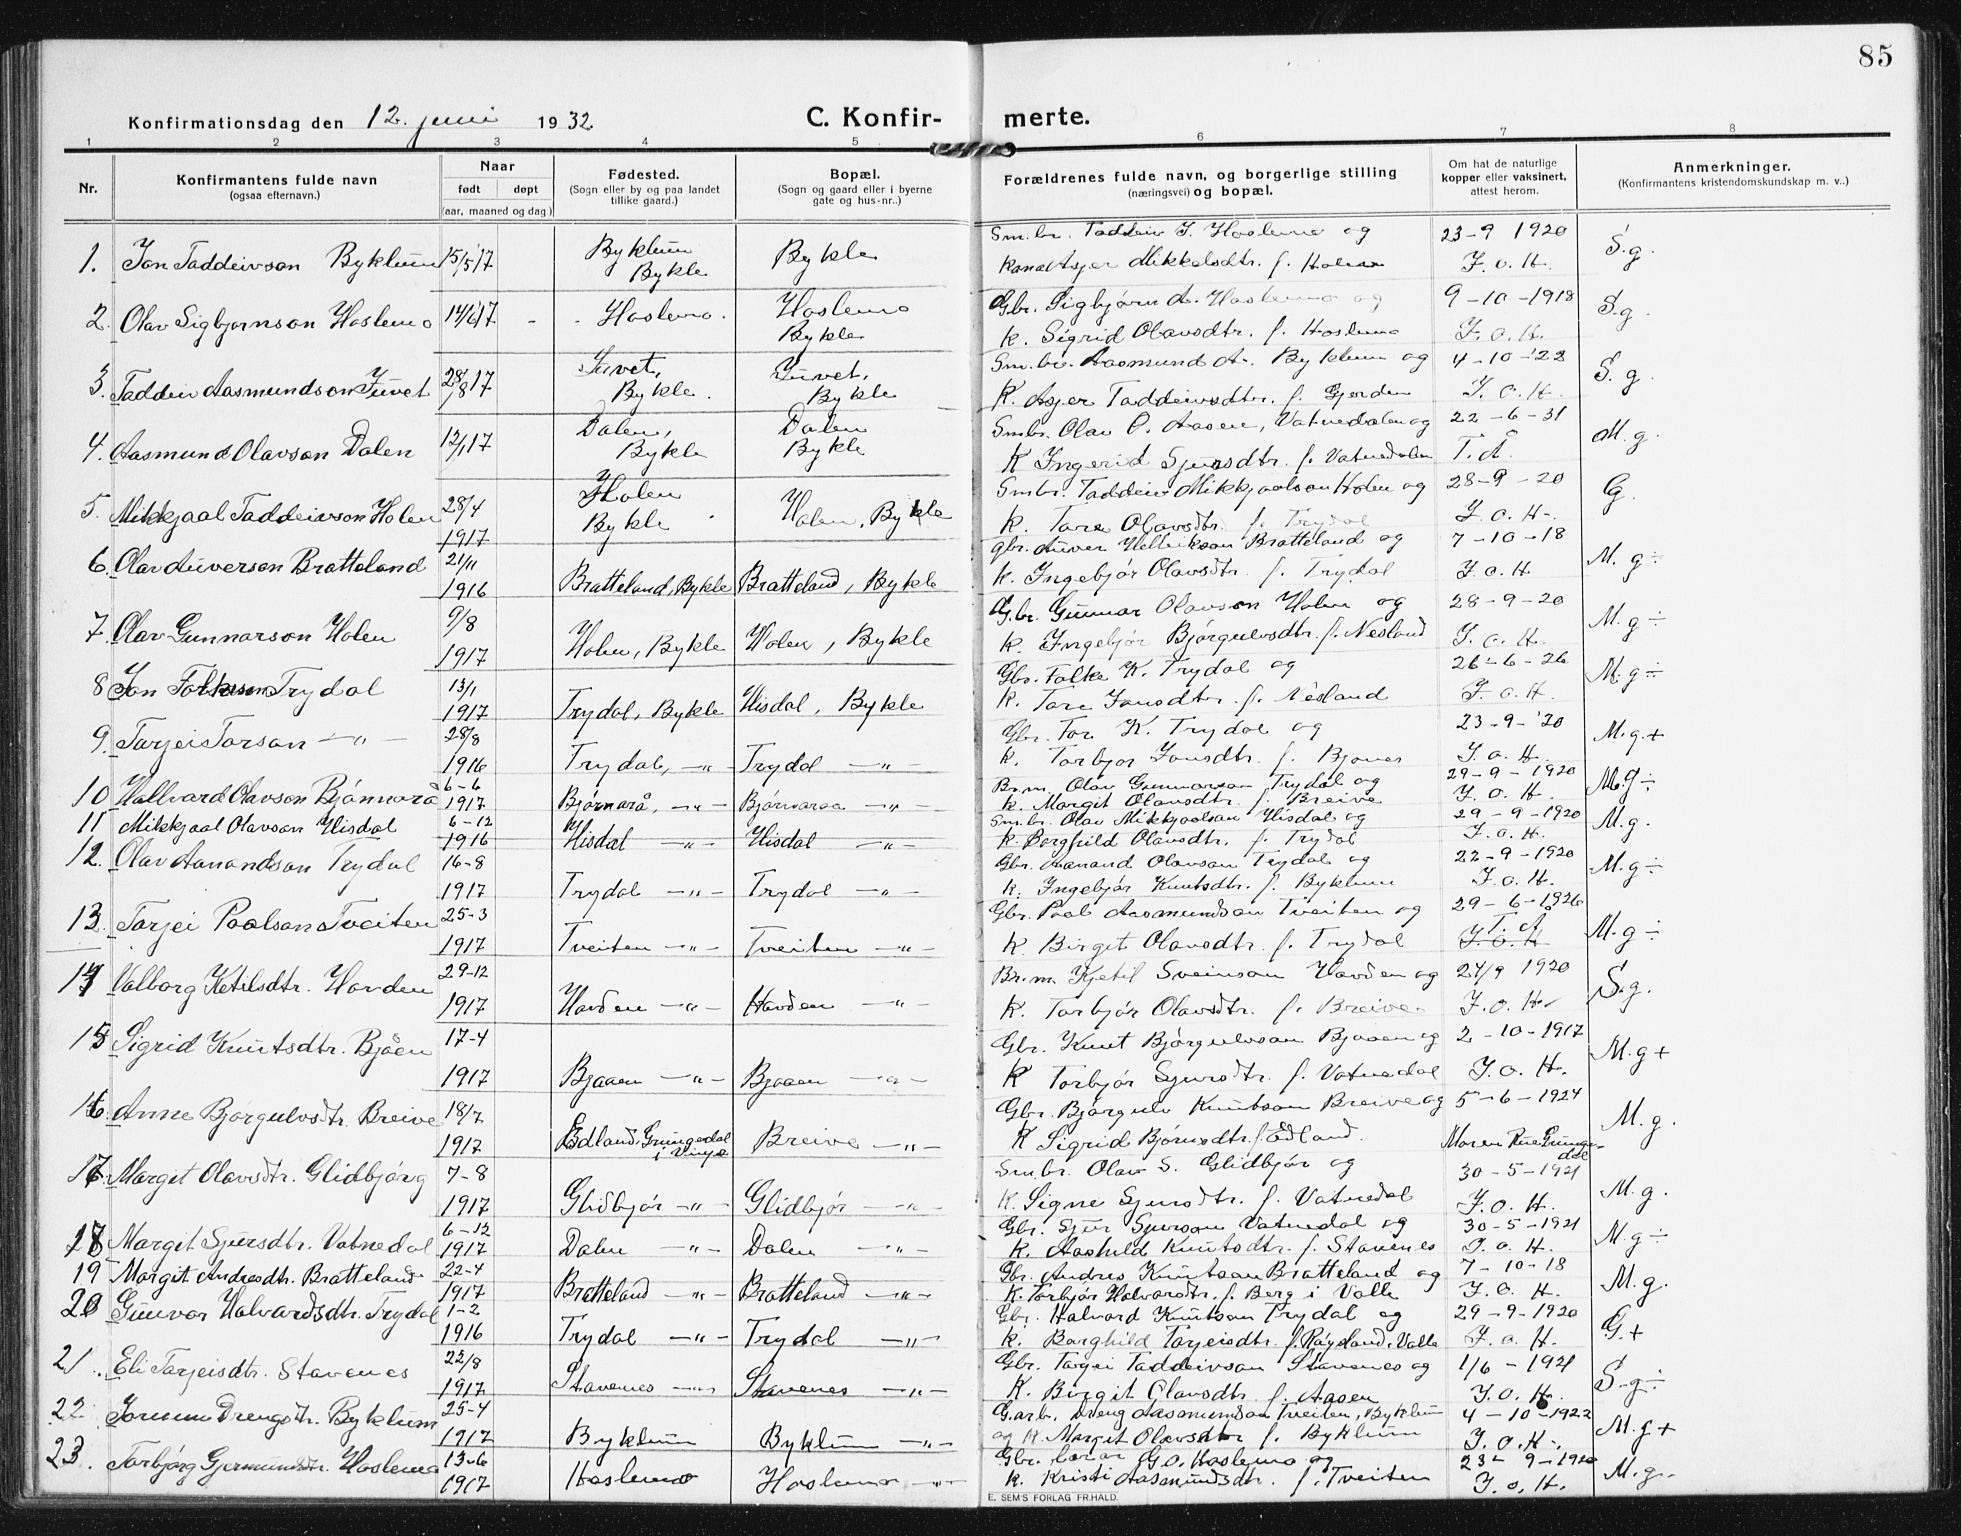 85
Konfirmationsdag den 12. juni 1932
C. Konfirmerte.
1 2 3 4 5 6 7 8
Nr. | Konfirmantens fulde navn (ogsaa efternavn.) | Naar født døpt (aar, maaned og dag) | Fødested. (Sogn eller by og paa landet tillike gaard.) | Bopæl. (Sogn og gaard eller i byerne gate og hus-nr..) | Forældrenes fulde navn, og borgerlige stilling (næringsvei) og bopæl. | Om hat de naturlige kopper eller vaksinert, attest herom. | Anmerkninger. (Konfirmantens kristendomskundskap m. v..)
1. Jon Taddeivson Byklum 15/5 17 Byklum Bykle Bykle Sm.br. Taddeiv J. Hoslemo og kona Asjer Mikkelsdtr. f. Holen 23-9 1920 J. o. H. S.g.
2. Olav Sigbjørnson Hoslemo 14/6 17 - - Hoslemo. Hoslemo Bykle Gbr. Sigbjørn A. Hoslemo og k. Sigrid Olavsdtr. f. Hoslemo 9-10-1918 J. o. H. S.g.
3. Taddeiv Aasmundson Juvet 28/8 17 Juvet, Bykle. Juvet, Bykle Sm.br. Aasmund A. Byklum og K. Asjer Taddeivsdtr. f. Gjerden 4-10-'22 J. o. H. S. g.
4. Aasmund Olavson Dalen 12/1 17 Dalen, Bykle Dalen Bykle Smbr. Olav O. Aasen, Vatnedalen og K Ingerid Sjursdtr. f. Vatnedalen 22-6-31 T. Å. M. g.
5. Mikkjaal Taddeivson Holen 28/4 1917 Holen Bykle Holen, Bykle Smbr. Taddeiv Mikkjaalson Holen og k. Tare Olavsdtr. f. Trydal 28-9-20 J. o. H. G.
6. Olav Auverson Bratteland 21/11 1916 Bratteland, Bykle Bratteland, Bykle gbr. Auver Hellikson Bratteland og k. Ingebjør Olavsdtr. f. Trydal 7-10-18 J. o. H M. g ÷
7. Olav Gunnarson Holen 9/8 1917 Holen, Bykle Holen, Bykle Gbr. Gunnar Olavson Holen og k. Ingebjør Bjørgulvsdtr. f. Nesland 28-9-20 J. o. H. M. g ÷
8 Jon Folkeson Trydal 13/1 1917 Trydal, Bykle Hisdal, Bykle Gbr. Folke K. Trydal og k. Tare Jonsdtr. f. Nesland 26-6-26 J. o. H. M. g ÷
9. Tarjei Torson -"- 28/8 1916 Trydal, -"- Trydal -"- Gbr. Tor K. Trydal og k. Torbjør Jonsdtr. f. Bjones 23-9-'20 J. o. H. M. g. +
10 Hallvard Olavson Bjønnarå 6-6 1917 Bjørnarå, -"- Bjørnaraa -"- Br.m. Olav Gunnarson Trydal og k. Margit Olavsdtr. f. Breive 29-9-1920 J. o. H. M.g ÷
11 Mikkjaal Olavson Hisdal 6-12 1916 Hisdal -"- Hisdal -"- Smbr. Olav Mikkjaalson Hisdal og k. Borghild Olavsdtr. f. Trydal 29-9-1920 J. o. H. M. g.
12. Olav Aanandson Trydal 16-8 1917 Trydal -"- Trydal -"- Gbr. Aanand Olavson Trydal og k. Ingebjør Knutsdtr. f. Byklum 22-9-1920 J. o. H. M. g ÷
13. Tarjei Paalson Tveiten 25-3 1917 Tveiten -"- Tveiten -"- Gbr. Paal Aasmundson Tveiten og k Birgit Olavsdtr. f. Trydal 29-6-1926 T. Å J. o. H M. g ÷
14 Valborg Ketilsdtr. Hovden 29-12 1917 Hovden -"- Hovden -"- Br.m. Kjetil Sveinson Hovden og k. Torbjør Olavsdtr. f. Breive. 24/9 1920 J. o. H. S.g.
15 Sigrid Knutsdtr. Bjåen 17-4 1917 Bjaaen -"- Bjaaen -"- Gbr. Knut Bjørgulvson Bjaaen og K Torbjør Sjursdtr. f. Vatnedal 2-10-1917 J. o. H. M. g +
16. Anne Bjørgulvsdtr. Breive 18/7 1917 Edland, Grungedal i Vinje Breive -"- Gbr. Bjørgulv Knutson Breive og K Sigrid Bjørnsdtr. f. Edland. 5-6-1924 Maren Rue Grungedal M. g.
17. Margit Olavsdtr. Glidbjørg 7-8 1917 Glidbjør -"- Glidbjør -"- Sm.br. Olav S. Glidbjør og k. Signe Sjursdtr. f. Vatnedal 30-5-1921 J. o. H. M. g.
18 Margit Sjursdtr. Vatnedal 6-12 1917 Dalen -"- Dalen -"- Gbr. Sjur Sjurson Vatnedal og k. Aashild Knutsdtr. f. Stavenes 30-5-1921 J. o. H. M. g ÷
19 Margit Andresdtr. Bratteland 22-4 1917 Bratteland -"- Bratteland -"- Gbr. Andres Knutson Bratteland og k. Torbjør Halvorsdtr. f. Berg i Valle 7-10-18 J. o. H. M. g.
20 Gunvor Halvardsdtr. Trydal 1-2 1916 Trydal -"- Trydal -"- Gbr. Halvard Knutson Trydal og k. Borghild Tarjeisdtr. f. Røysland, Valle 29-9-1920 J. o. H. G. +
21. Eli Tarjeisdtr. Stavenes 22/8 1917 Stavenes -"- Stavenes -"- Gbr. Tarjei Taddeivson Stavenes og K. Birgit Olavsdtr. f. Aasen 1/6-1921 J. o. H. S-g ÷
22 Jorunn Drengsdtr. Byklum 25-4 1917 Byklum Byklum -"- G.arb. Dreng Aasmundson Tveiten, Byklum og k. Margit Olavsdtr f. Byklum 4-10-1922 J. o. H. M. g +
23. Torbjørg Gjermundsdtr. Hoslemo 13-6 1917 Hoslemo Hoslemo -"- Gbr. G. O. Hoslemo og k. Kristi Aasmundsdtr. f. Tveiten 23-9-1920 J. o. H. M. g.
E. SEM'S FORLAG FR.HALD.